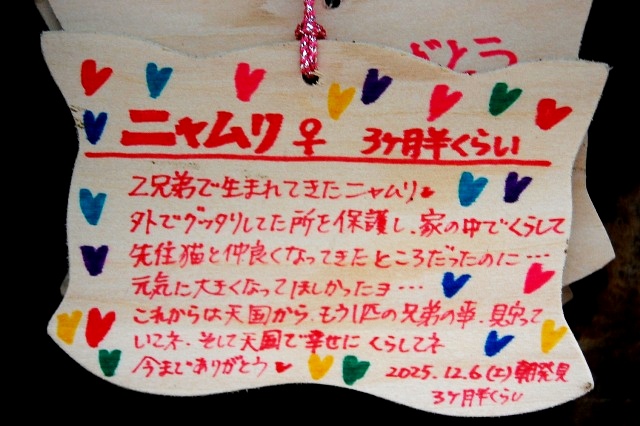 がとう
ニャムリ♀ 3ヶ月半くらい
2兄弟で生まれてきたニャムリ
外でグッタリしてた所を保護し、家の中でくらして
先住猫と仲良くなってきたところだったのに…
元気に大きくなってほしかったヨ…
これからは天国から、もう1匹の兄弟の事、見守って
いてネ、そして天国で幸せにくらしてネ
今までありがとう
2025.12.6(土)朝発見
3ヶ月半くらい